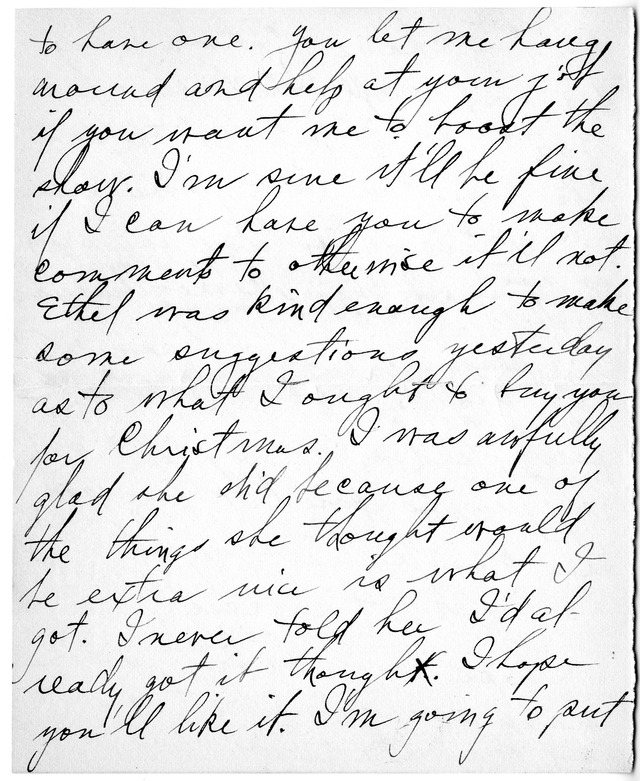 to have one. You let me hang
around and help at your j'st
if you want me to boost the
show. I'm sure it'll be fine
if I can have you to make
comments to otherwise it'll not.
Ethel was kind enough to make
some suggestions yesterday
as to what I ought to buy you
for Christmas. I was awfully
glad she did because one of
the things she thought would
be extra nice is what I
got. I never told her I'd al-
ready got it though. I hope
you'll like it. I'm going to put